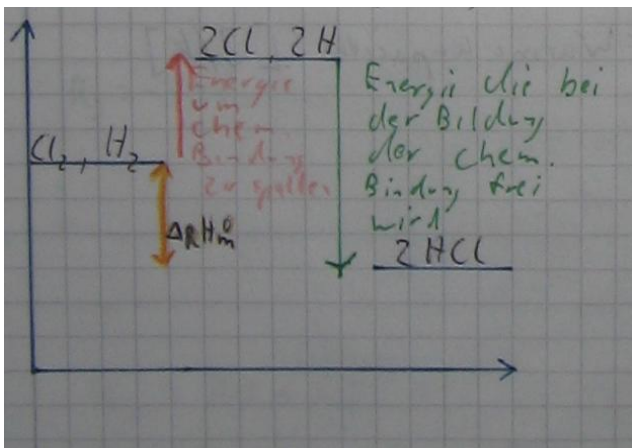 2Cl, 2H
Energie
um
chem.
Bindung
zu spalten
Energie die bei
der Bildung
der chem.
Bindung frei
wird
Cl₂, H₂
ΔRH⁰m
2 HCl